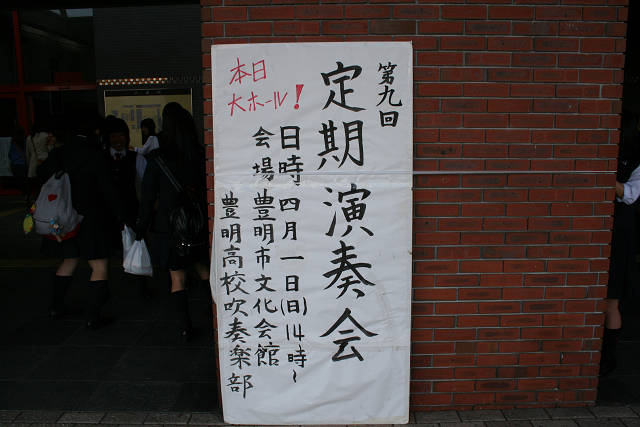 第九回
定期演奏会
日時 四月一日(日)14時~
会場 豊明市文化会館
豊明高校吹奏楽部
本日
大ホール!